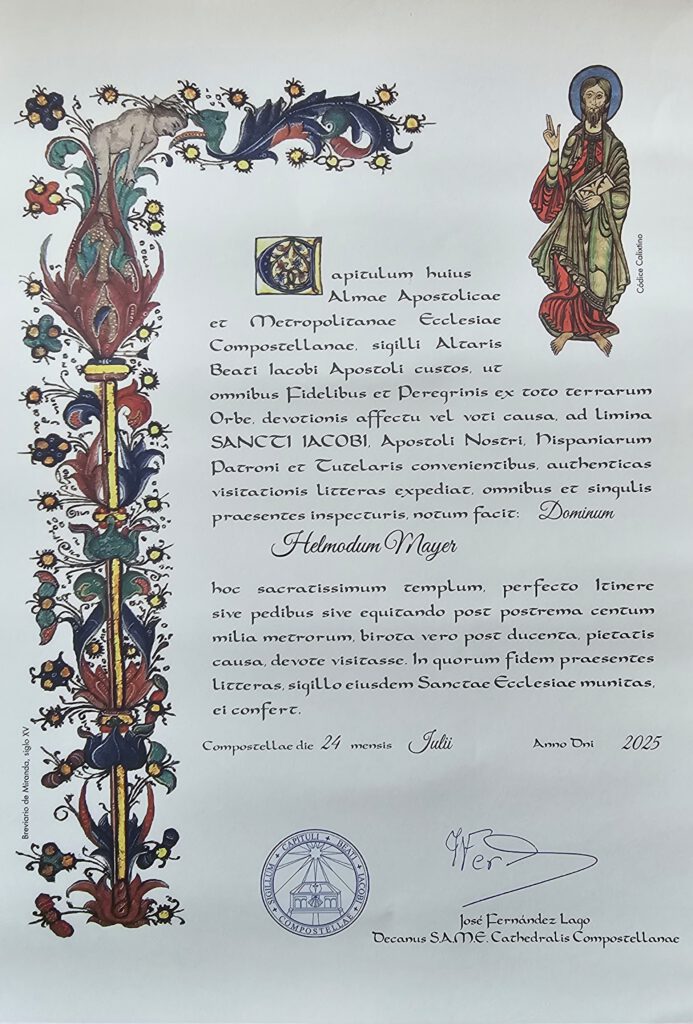 Códice Calixtino
Capitulum huius
Almae Apostolicae
et Metropolitanae Ecclesiae
Compostellanae, sigilli Altaris
Beati Iacobi Apostoli custos, ut
omnibus Fidelibus et Peregrinis ex toto terrarum
Orbe, devotionis affectu vel voti causa, ad limina
SANCTI IACOBI, Apostoli Nostri, Hispaniarum
Patroni et Tutelaris convenientibus, authenticas
visitationis litteras expediat, omnibus et singulis
praesentes inspecturis, notum facit: Dominum
Helmodum Mayer
hoc sacratissimum templum, perfecto Itinere
sive pedibus sive equitando post postrema centum
milia metrorum, birota vero post ducenta, pietatis
causa, devote visitasse. In quorum fidem praesentes
litteras, sigillo eiusdem Sanctae Ecclesiae munitas,
ei confert.
Compostellae die 24 mensis Julii Anno Dni 2025
Breviario de Miranda, siglo XV
SIGILLUM CAPITULI BEATI IACOBI COMPOSTELLAE
José Fernández Lago
Decanus S.A.M.E. Cathedralis Compostellanae